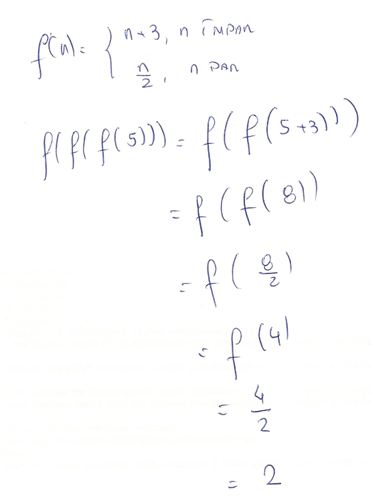 f(n) = { n+3, n ÍMPAR
n/2, n PAR
f(f(f(5))) = f(f(5+3)))
= f(f(8))
= f(8/2)
= f(4)
= 4/2
= 2